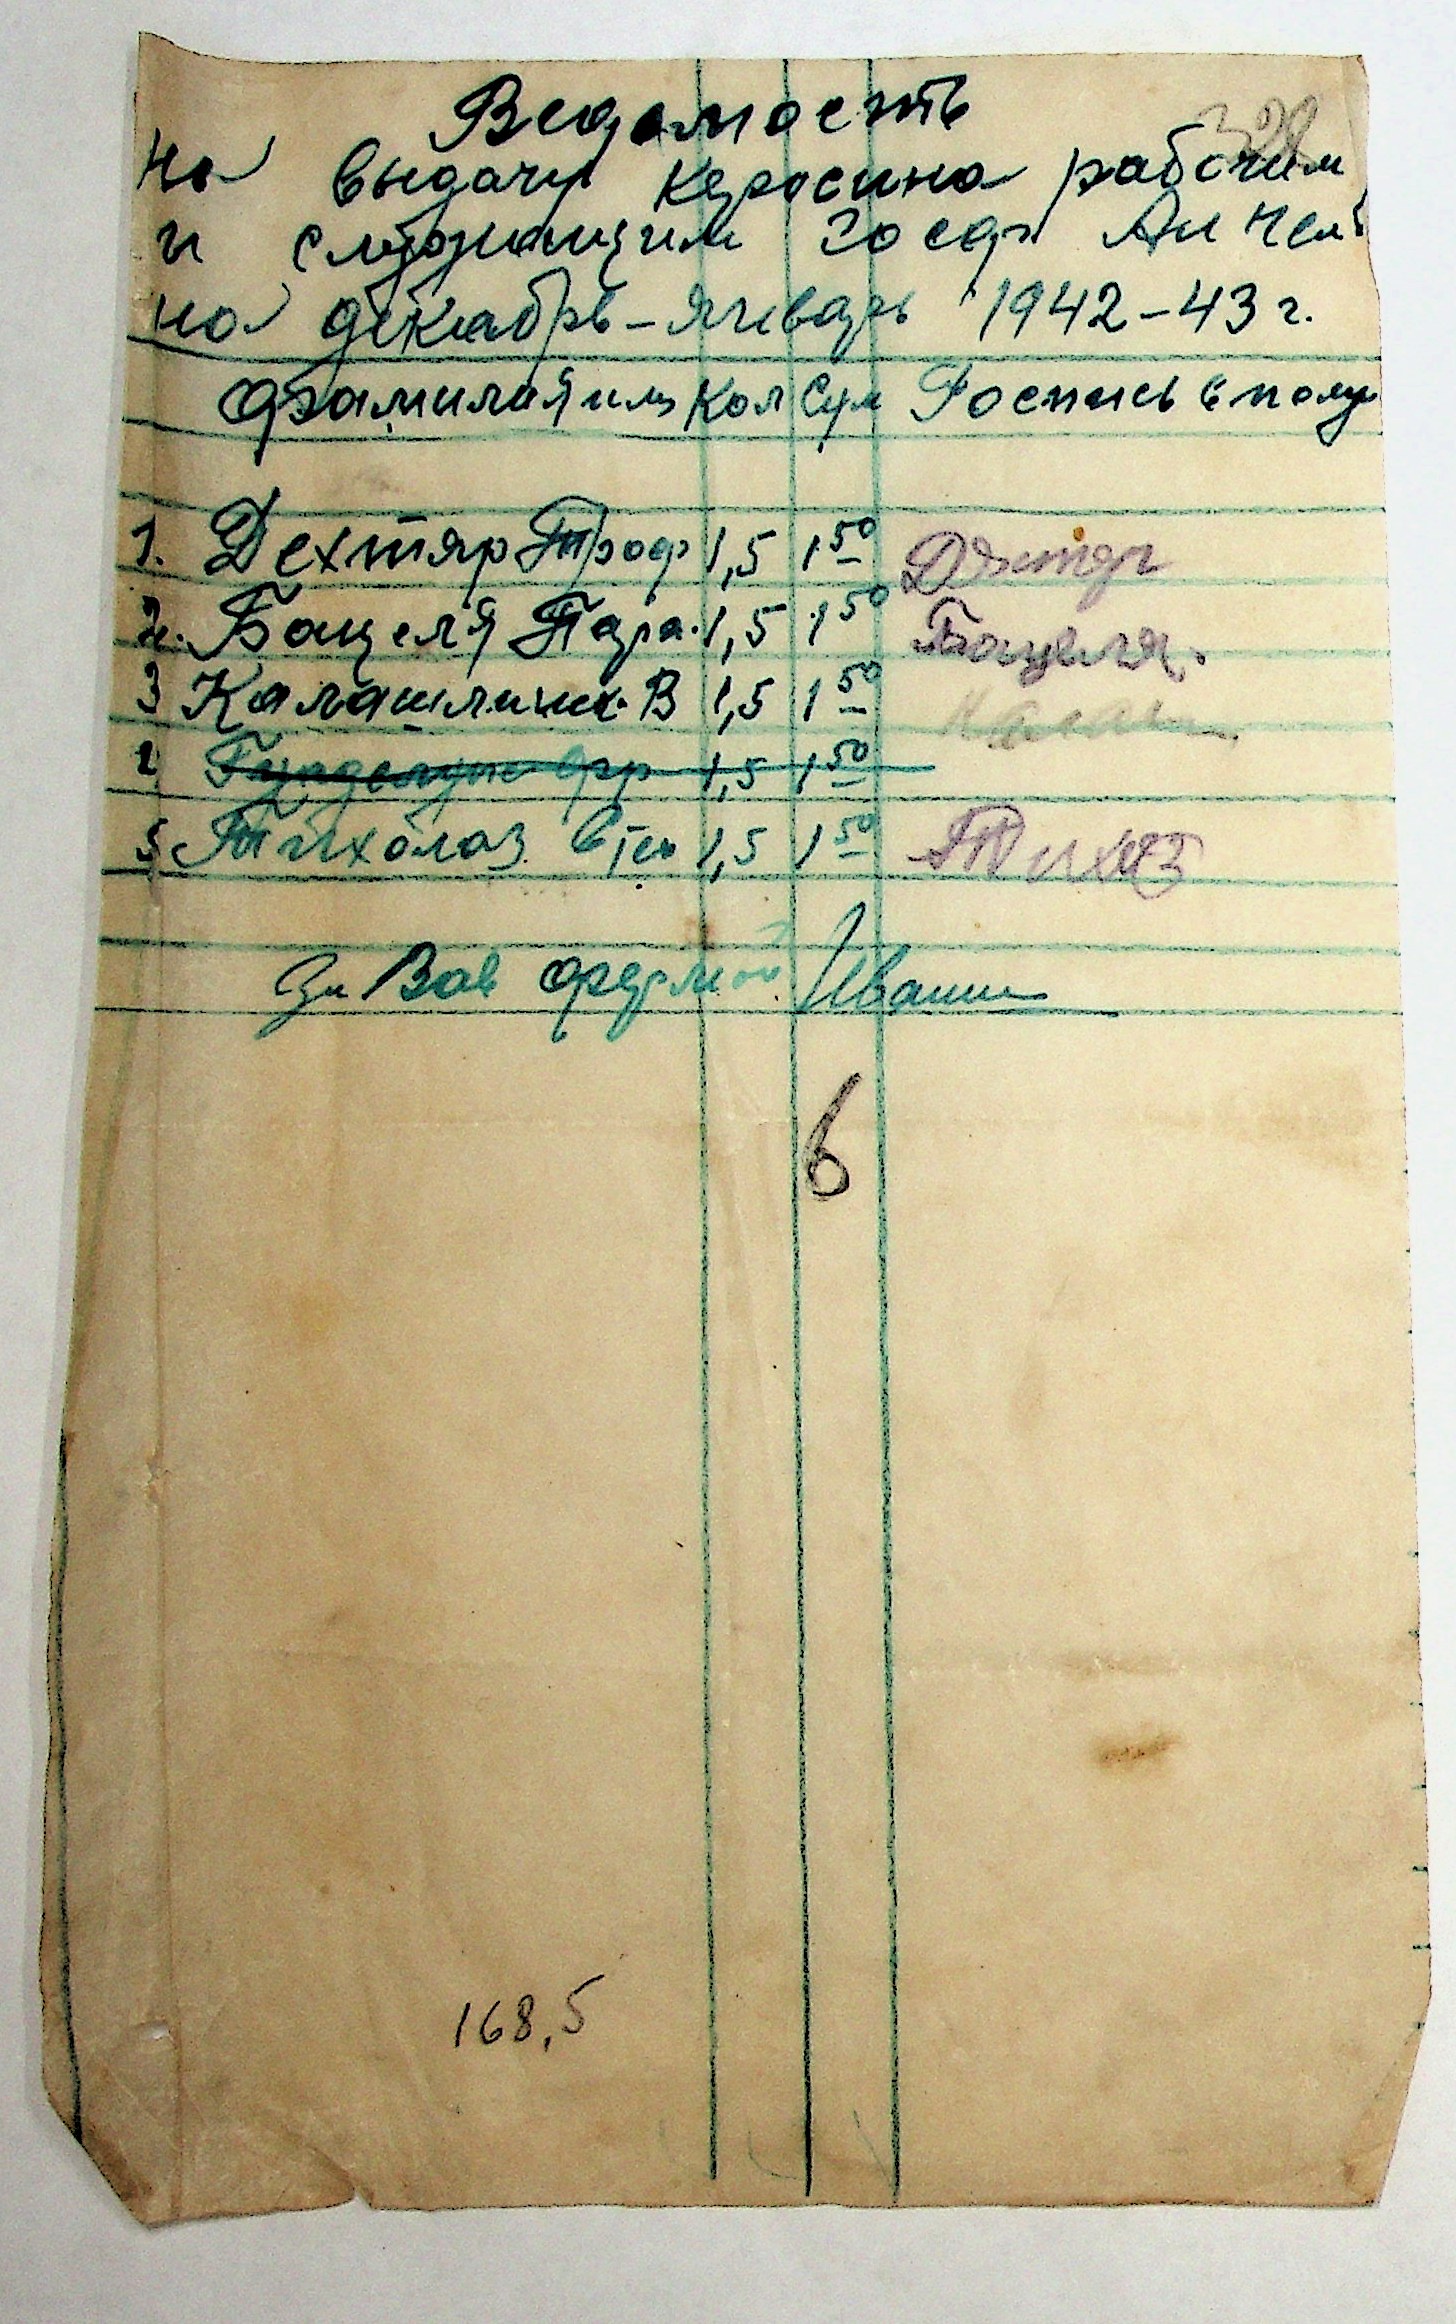 Ведомость
328
на выдачу керосина рабочим
и служащим Госдр
на декабрь-январь 1942-43 г.
фамилия имя Кол Сум Роспись в полу
1. Дехтяр Троф 1,5 1 50 Дехтяр
2. Бацеля Пара. 1,5 1 50 Бацеля.
3 Калашник. В 1,5 1 50 Калаш
1,5 1 50
5 Тихолаз Степ 1,5 1 50 Тихлаз
Зав фермой Иванш
6
168,5